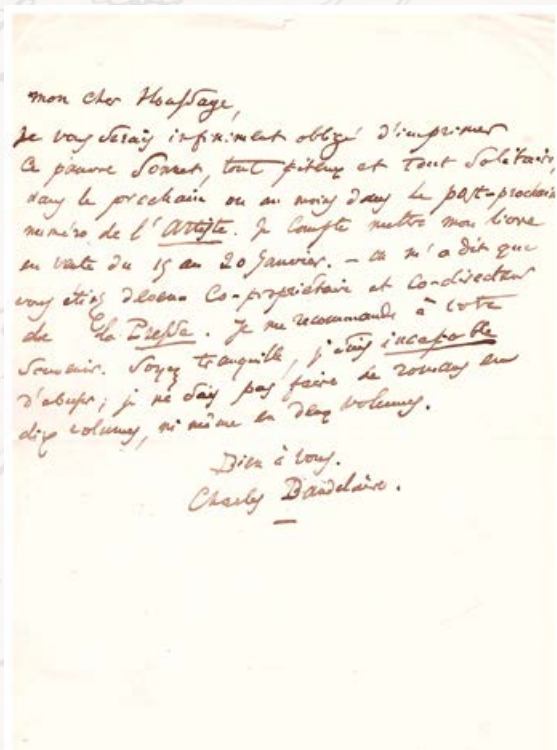 mon cher Houssaye,
Je vous serais infiniment obligé d'imprimer
ce pauvre Sonnet, tout piteux et tout solitaire,
dans le prochain ou au moins dans le post-prochain
numéro de l'Artiste. Je compte mettre mon livre
en vente du 15 au 20 Janvier. – On m'a dit que
vous étiez devenu Co-propriétaire et Co-directeur
de la Presse. Je me recommande à votre
Souvenir. Soyez tranquille, j'suis incapable
d'abuser; je ne sais pas faire de romans en
dix volumes, ni même en deux volumes.
Bien à vous.
Charles Baudelaire.